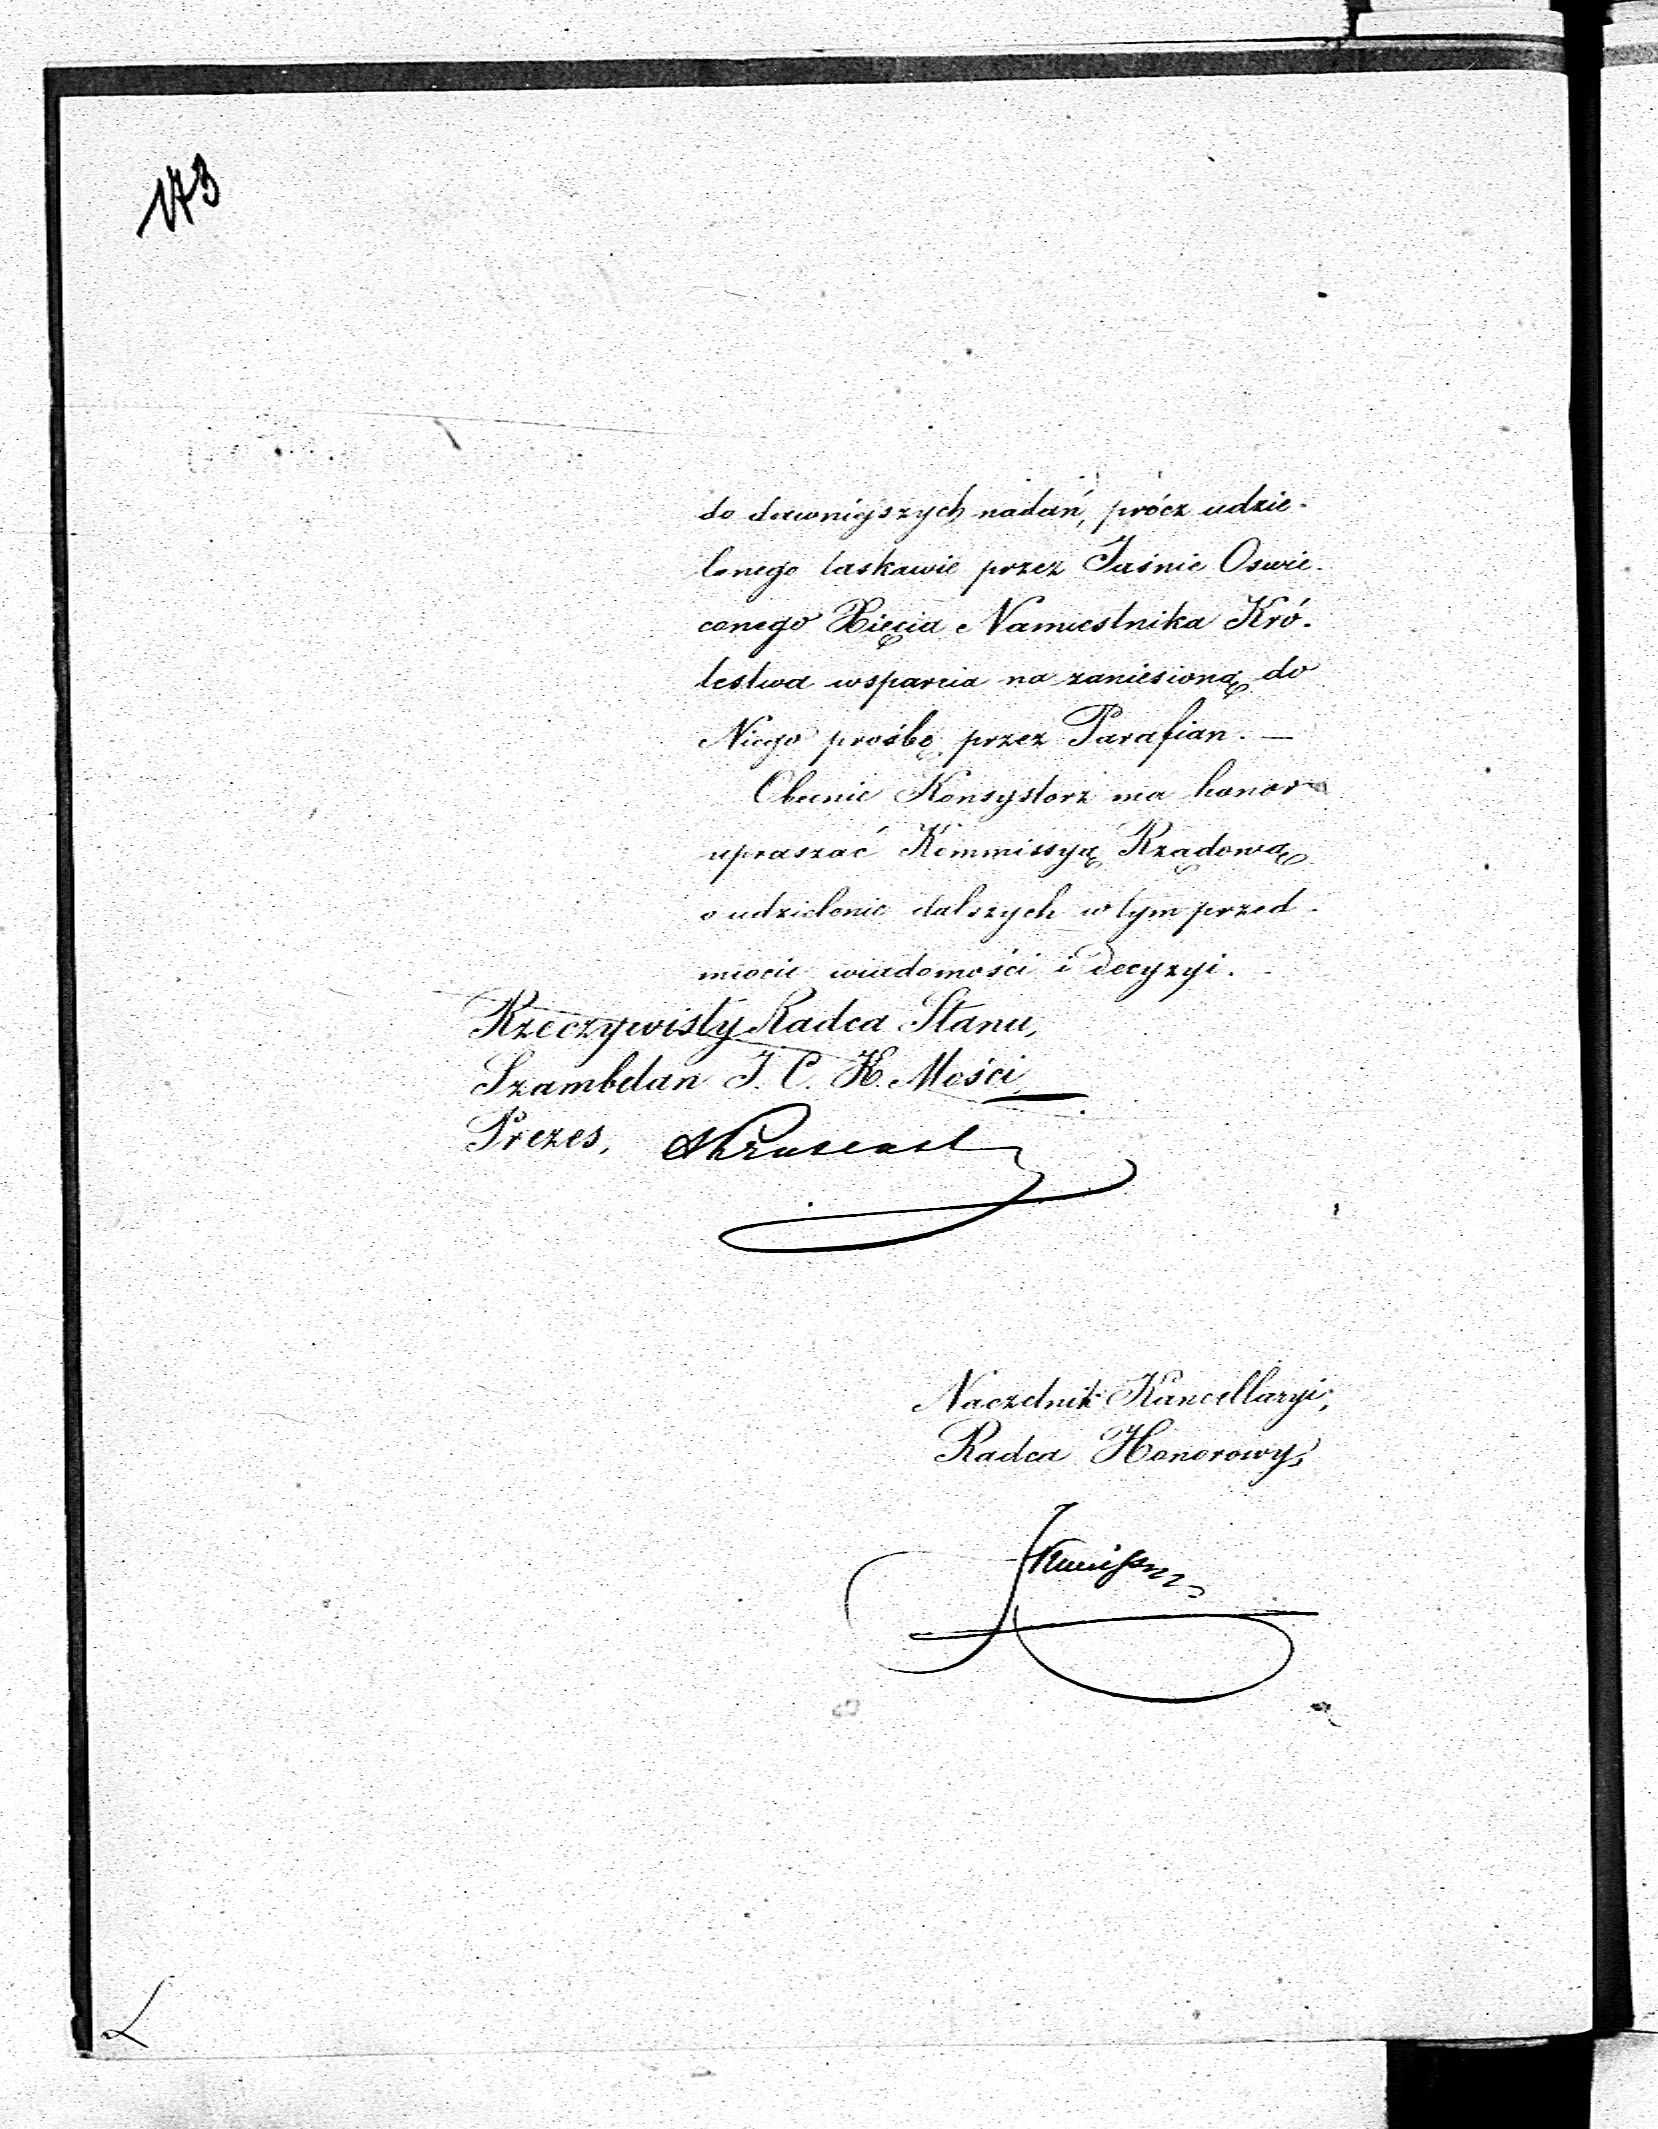 173
do dawniejszych nadań, prócz udzie-
lonego łaskawie przez Jaśnie Oswie-
conego Xięcia Namiestnika Kró-
lestwa wsparcia na zaniesioną do
Niego prośbę przez Parafian. —
Obecnie Konsystorz ma honor
upraszać Kommissyą Rządową
o udzielenie dalszych w tym przed-
miocie wiadomości i decyzyi.
Rzeczywisty Radca Stanu,
Szambelan J. C. K. Mości
Prezes,
Naczelnik Kancellaryi,
Radca Honorowy,